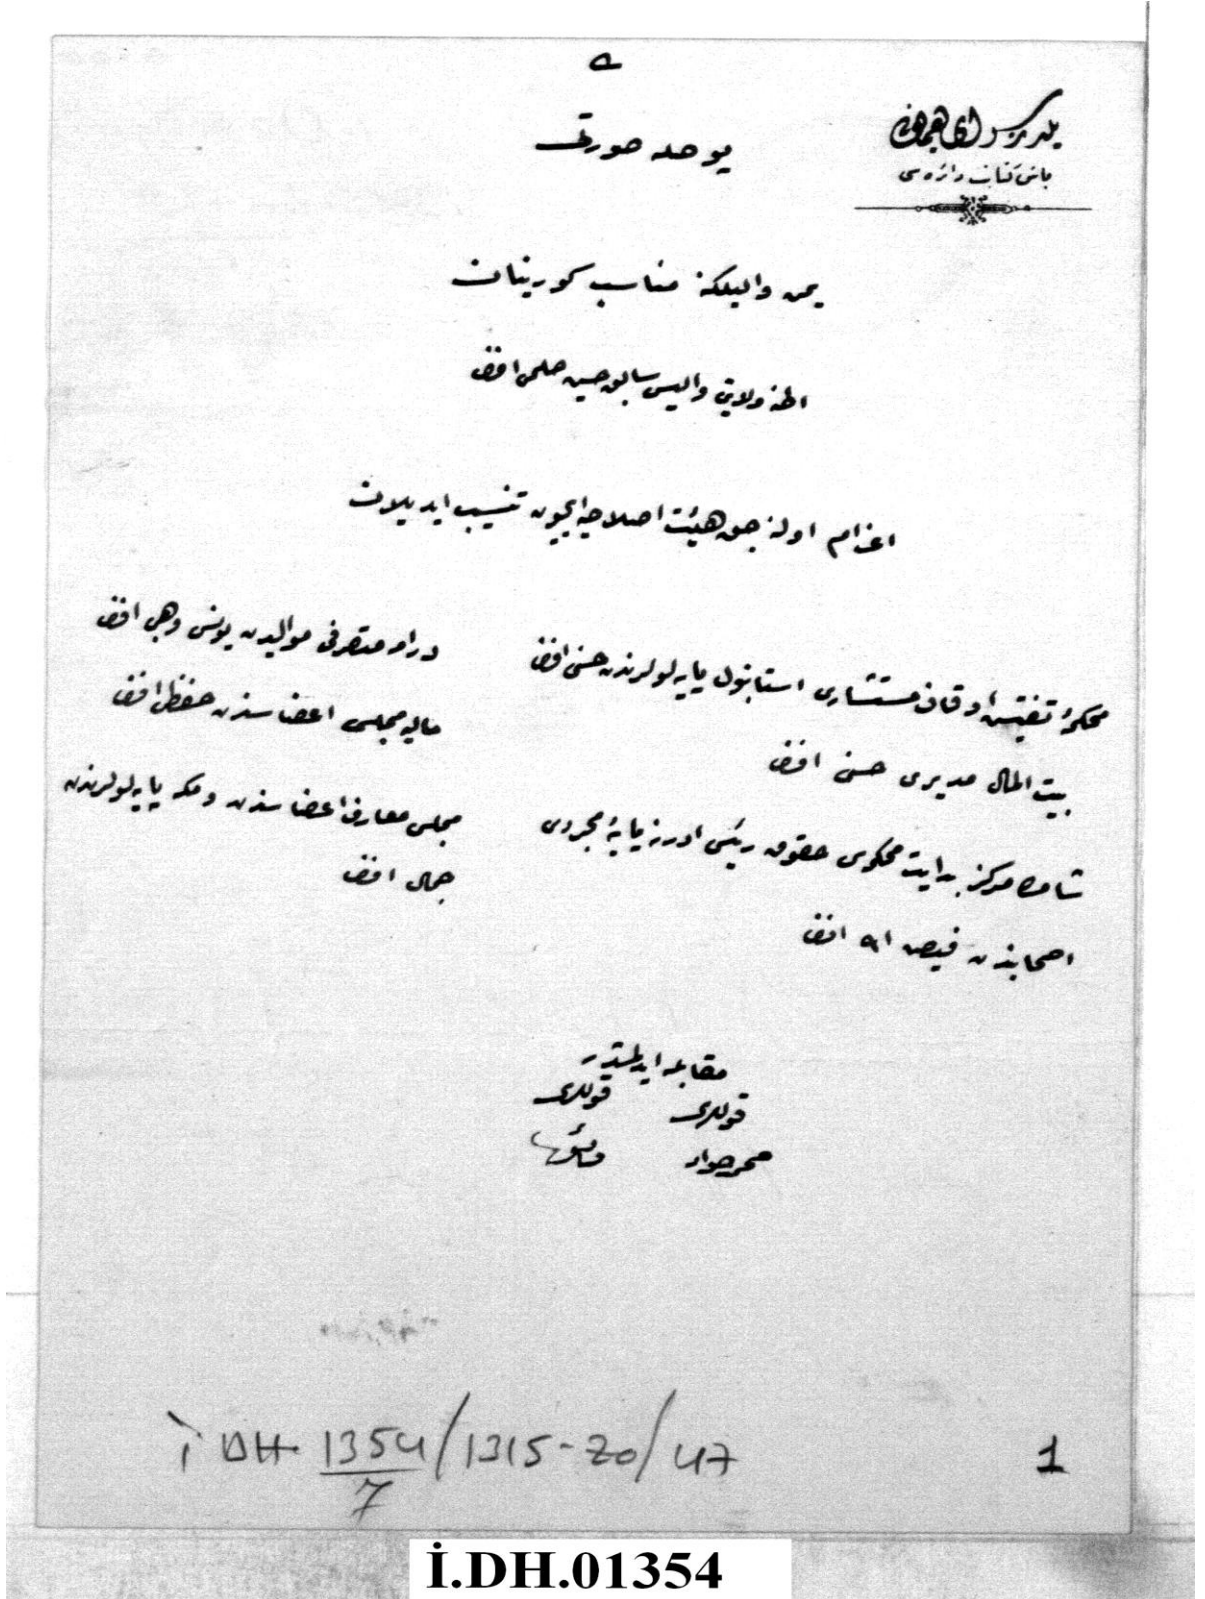 يلديز سراى همايونى
باش كتابت دائره سى
بوصله صورتى
يمن واليلكنه مناسب كورينان
اطنه ولايتى واليسى سابق حسين حلمى افندى
اعزام اوله جق هيئت اصلاحيه ايچون تنسيب ايديلان
محكمۀ تفتيش اوقاف مستشارى استانبول پايه لولرندن حسنى افندى
بيت المال مديرى حسنى افندى
شام مركز بدايت محكمه سى حقوق رئيسى ادرنه پايۀ مجردى
اصحابندن فيض الله افندى
درامه متصرفى مواليدن يونس وهبى افندى
ماليه مجلسى اعضاسندن حفظى افندى
مجلس معارف اعضاسندن ومكه پايه لولرندن
جمال افندى
مقابله ايدلمشدر
قوللرى قوللرى
محمد جواد فائق
İ DH 1354/1315-Z0/47
7
1
İ.DH.01354